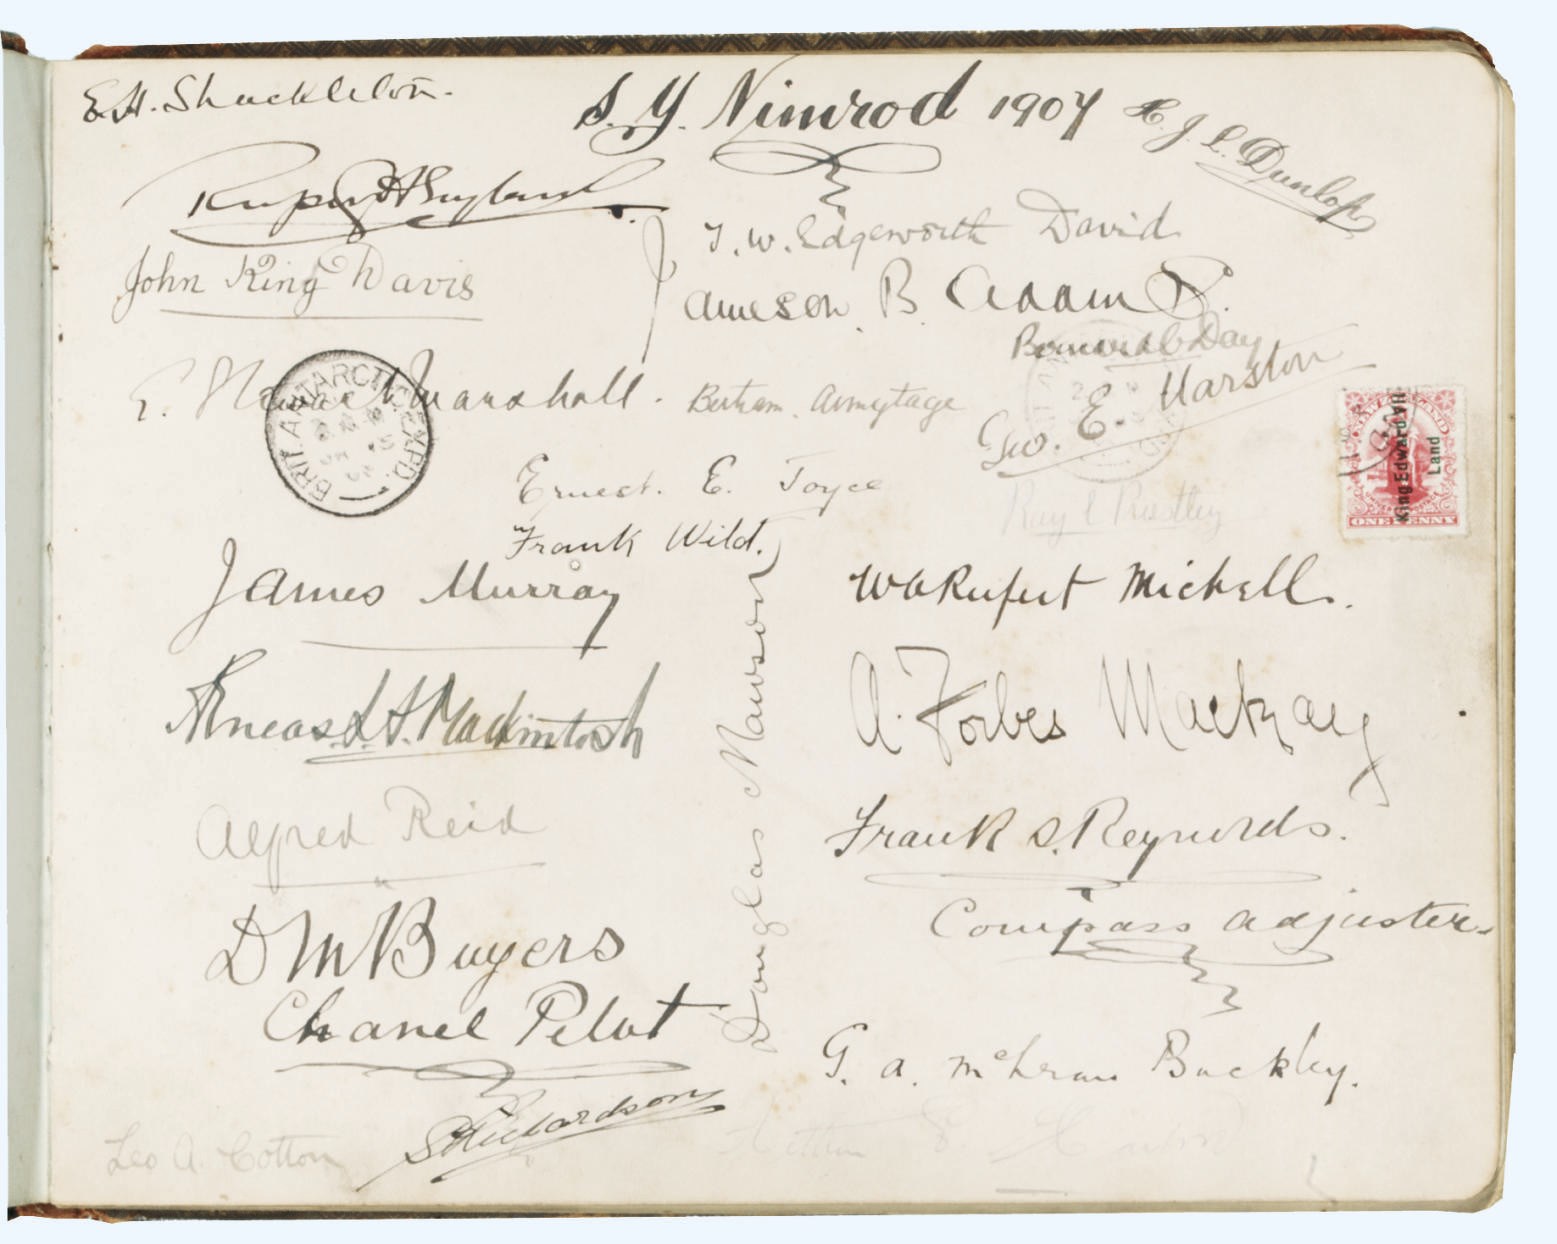 E.H. Shackleton.
S. Y. Nimrod 1907
H. J. L. Dunlop
Rupert England
John King Davis
T. W. Edgeworth David
Jameson B. Adams.
Bernard C Day
E. Marshall.
Bertram. Armytage
Geo. E. Marston
BRIT. ANTARCTIC EXPD.
King Edward VII
Land
ONE PENNY
Ernest. E. Joyce
Raymond E Priestley
Frank Wild.
James Murray
W A Rupert Michell.
Æneas L. A. Mackintosh
A. Forbes Mackay
Douglas Mawson
Alfred Reid
Frank D. Reynolds.
Compass adjuster.
D M Buyers
Chanel Pelut
G. A. McLean Buckley.
S Richardson
Leo A. Cotton
Arthur E